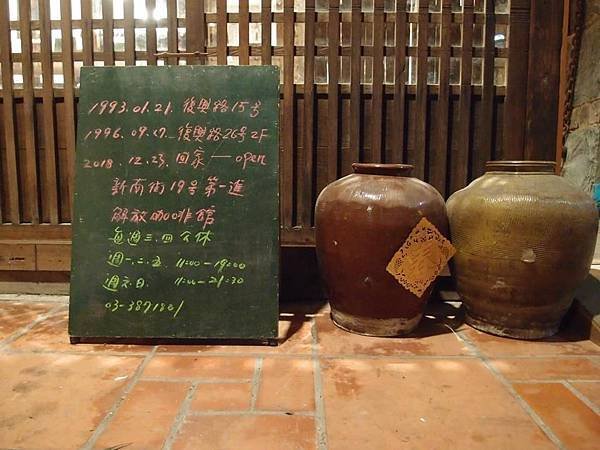 1993.01.21. 復興路15号
1996.09.17. 復興路26号2F
2018.12.23. 回家——open
新南街19号第一進
解放咖啡館
每週三.四公休
週一.二.五. 11:00-19:00
週六.日. 11:00-21:30
03-3871801